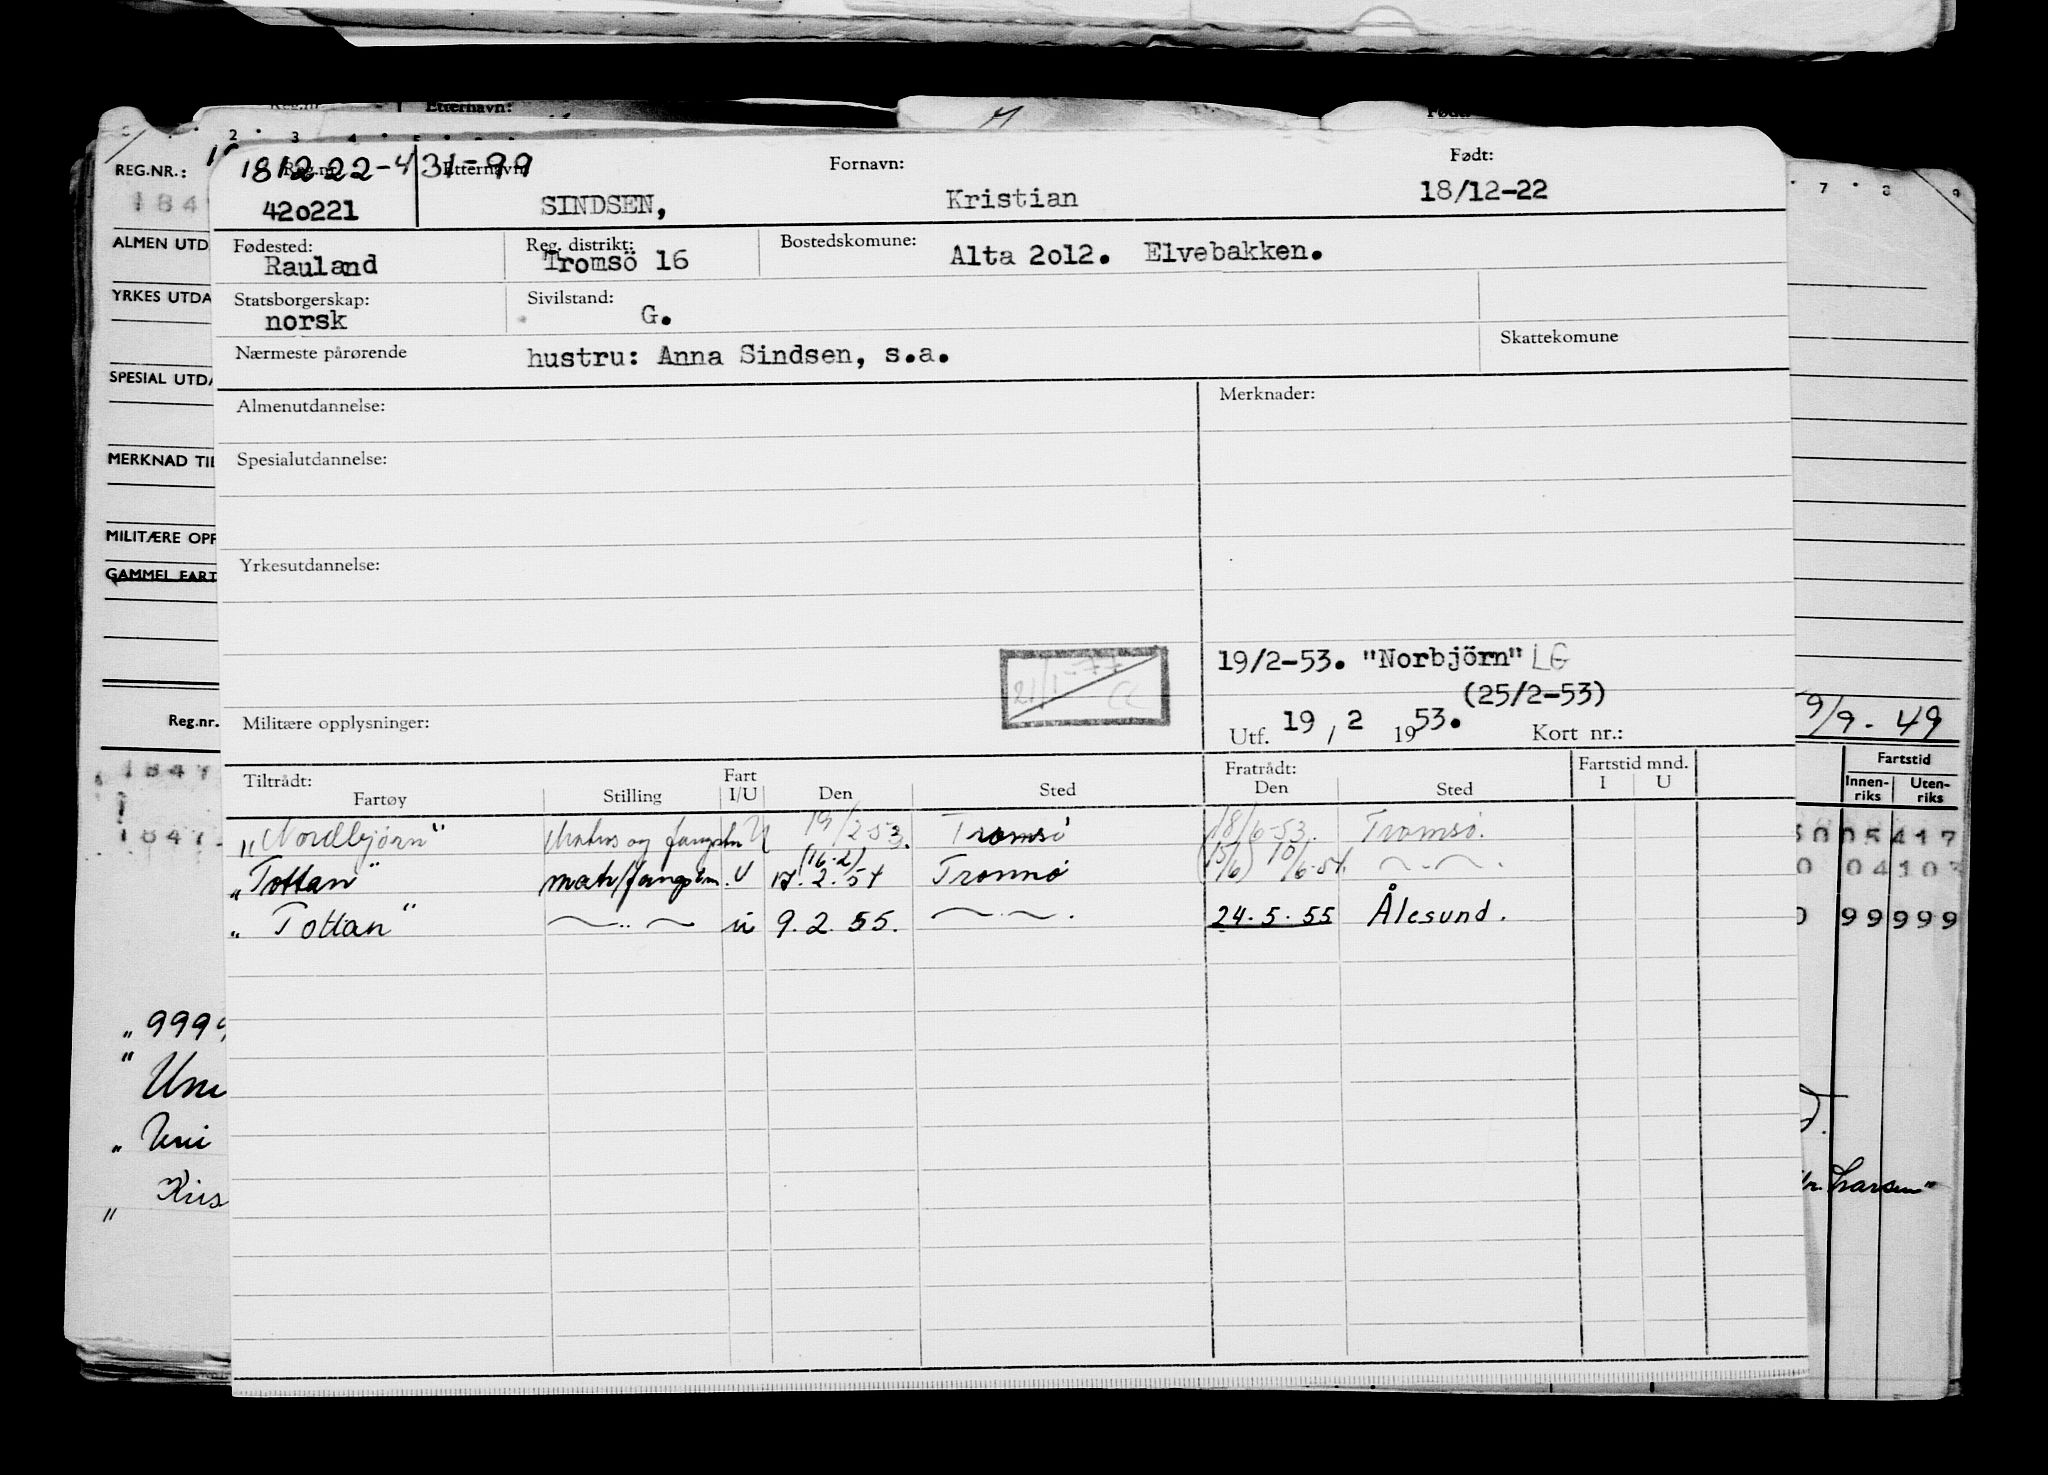 Reg.nr Etternavn: Født:
2 3 4 5
181222-431-99
Reg.nr. Etternavn: Fornavn: Født:
420221 SINDSEN, Kristian 18/12-22
Fødested: Reg. distrikt: Bostedskomune:
Rauland Tromsö 16 Alta 2012. Elvebakken.
Statsborgerskap: Sivilstand:
norsk G.
Nærmeste pårørende hustru: Anna Sindsen, s.a. Skattekomune
Almenutdannelse: Merknader:
Spesialutdannelse:
Yrkesutdannelse:
19/2-53. "Norbjörn" LG
(25/2-53)
Militære opplysninger: Utf. 19 / 2 1953. Kort nr.:
Tiltrådt: Fratrådt: Fartstid mnd.
Fartøy Stilling Fart I/U Den Sted Den Sted I U
"Nordbjørn" Matros og fangstm U 19/2 53. Tromsø 18/6-53. Tromsø.
(16-2) (15/6)
"Tottan" matr/fangstm. U 17.2.54 Tromsø 10/6-54. 〜..〜.
"Tottan" 〜..〜 u 9.2.55. 〜..〜. 24.5.55 Ålesund.
REG.NR.:
184
ALMEN UTD
YRKES UTDA
SPESIAL UTDA
MERKNAD TIL
MILITÆRE OPP
GAMMEL FART
Reg.nr.
1847
1847
"9999
"Uni
"Uni
"Kris
7 8 9
9/9-49
Fartstid
Innen-riks Uten-riks
0005417
0 04103
0 99999
Larsen"